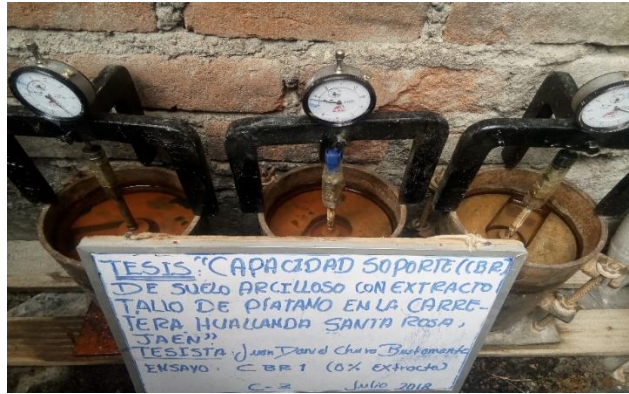 TESIS: "CAPACIDAD SOPORTE (CBR)
DE SUELO ARCILLOSO CON EXTRACTO
TALLO DE PLATANO EN LA CARRE-
TERA HUALLANDA SANTA ROSA,
JAEN"
TESISTA: Juan David Bustamante
ENSAYO: CBR 1 (0% Extracto)
C-3 Julio 2018